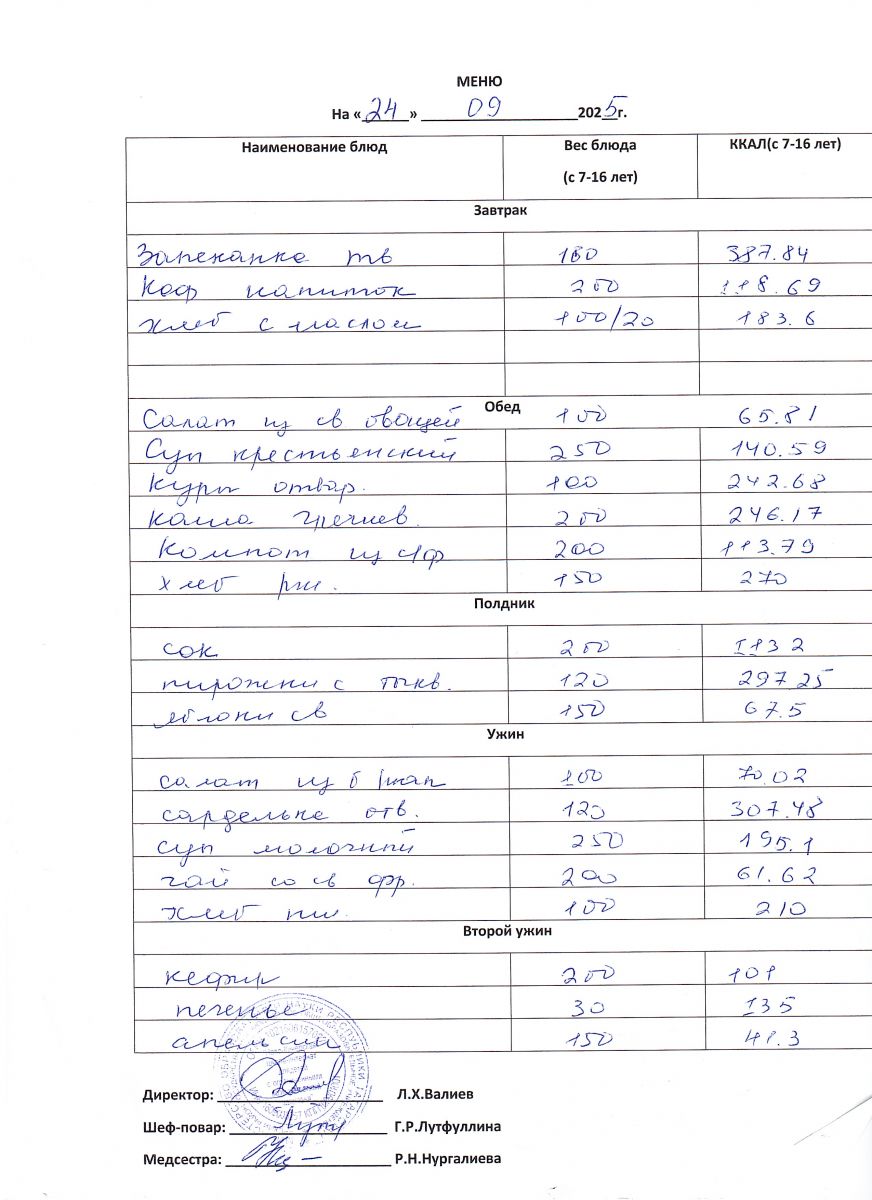 МЕНЮ
На «24» 09 2025г.
Наименование блюд Вес блюда (с 7-16 лет) ККАЛ(с 7-16 лет)
Завтрак
Запеканка тв 180 387.84
Коф напиток 200 118.69
хлеб с маслом 100/20 183.6
Обед
Салат из св овощей 100 65.81
Суп крестьенский 250 140.59
Куры отвар. 100 242.68
каша гречнев. 200 246.17
Компот из с/ф 200 113.79
хлеб рж. 150 270
Полдник
сок 200 113 2
пирожки с тыкв. 120 297 25
яблоки св 150 67.5
Ужин
салат из б/кап 100 70.02
сарделька отв. 120 307.48
суп молочный 250 195.1
чай со св фр. 200 61.62
Хлеб пш. 100 210
Второй ужин
кефир 200 101
печенье 30 135
апельсин 150 41.3
Директор: Л.Х.Валиев
Шеф-повар: Г.Р.Лутфуллина
Медсестра: Р.Н.Нургалиева